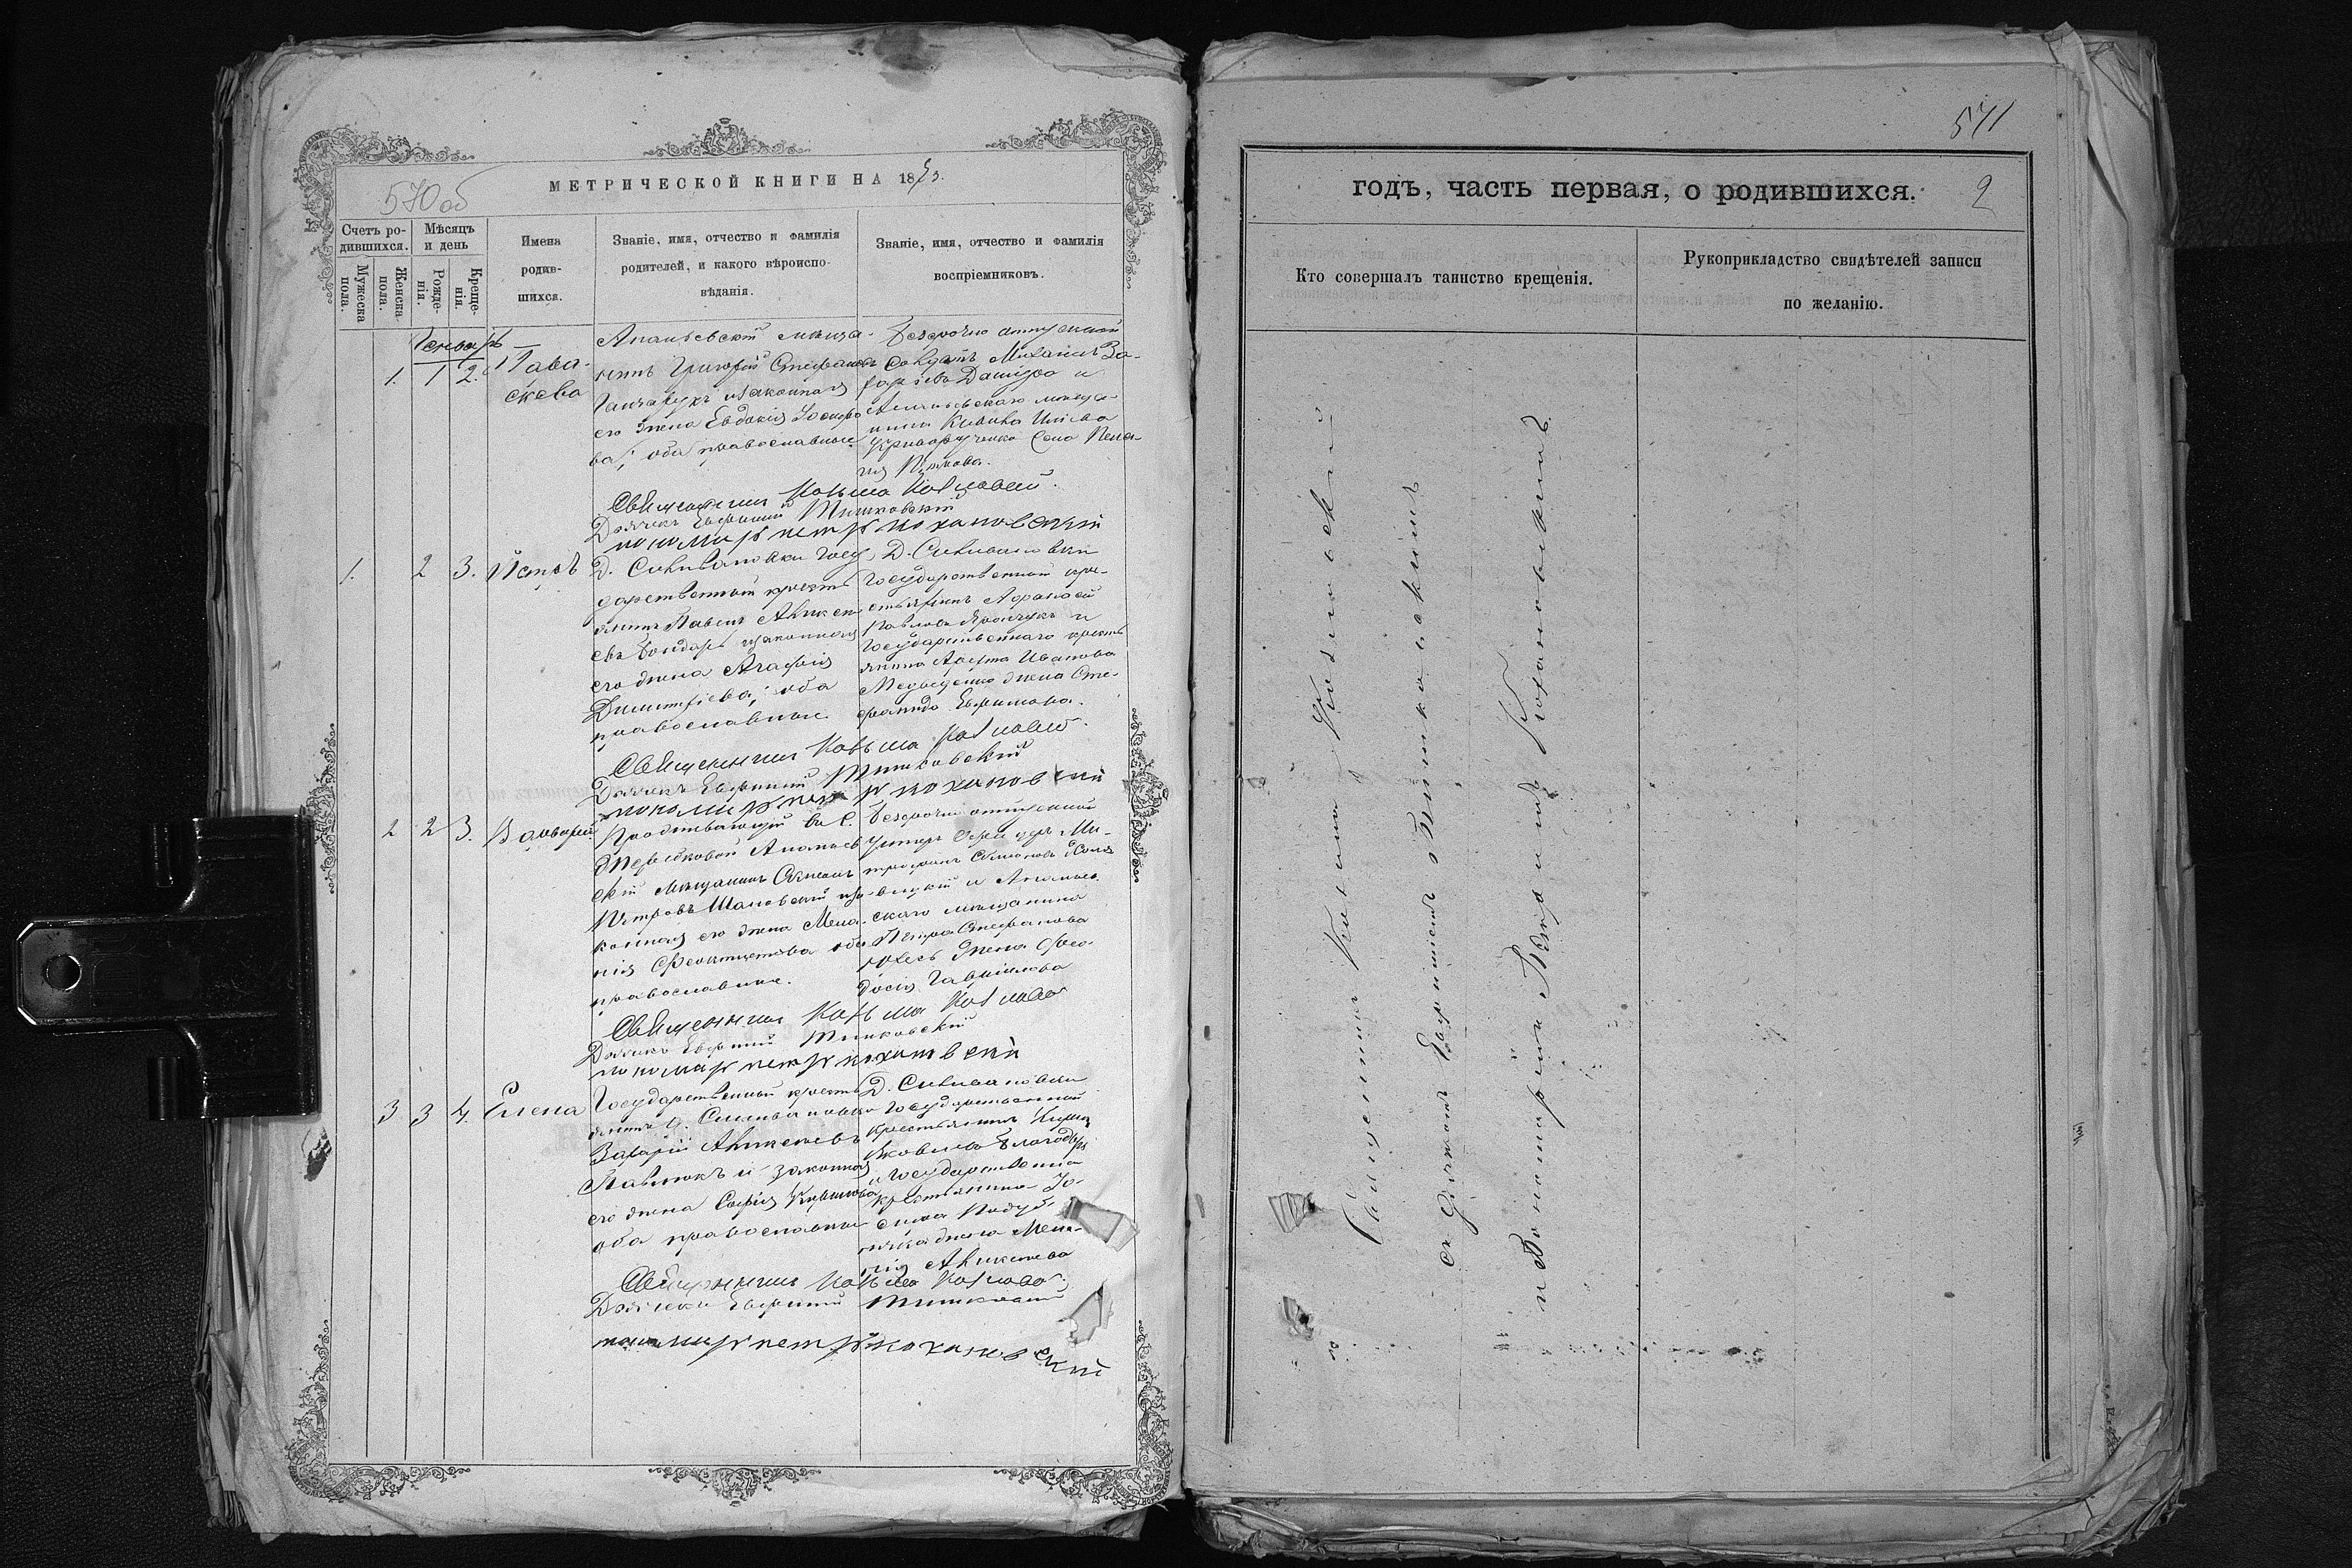 570об
МЕТРИЧЕСКОЙ КНИГИ НА 1873.
Счетъ ро-
дившихся.
Мѣсяцъ
и день
Мужеска
пола.
Женска
пола.
Рожде-
нія.
Креще-
нія.
Имена
родив-
шихся.
Званіе, имя, отчество и фамилія
родителей, и какого вѣроиспо-
вѣданія.
Званіе, имя, отчество и фамилія
воспріемниковъ.
Генварь
1. 1 2. Пара-
скева
Ананьевскій мѣща-
нинъ Григорій Стефановъ
Ганчарукъ и законная
его жена Евдокія Іосифо
ва; оба православные
Безсрочно отпускной
Солдатъ Михаилъ За-
харіевъ и
Ананьевскаго мѣща-
нина
жена Пела-
гія
Священникъ Козьма Козловскій.
Дьячекъ Евфимій Тишковскій
пономарь петръ кохановскій
1. 2 3. Петръ
Д. Селивановки Госу
дарственный кресть
янинъ Павелъ Аникіе
евъ Бондарь и законная
его жена Агафія
Димитріева; оба
православные.
Д. Селивановки
Государственный кре-
стьянинъ Афанасій
Павловъ и
Государственнаго кресть
янина Ивана
жена Сте-
фанида Ефимова.
Священникъ Козьма Козловскій.
Дьячекъ Евфимій Тишковскій
пономарь петръ кохановскій
2 2 3. Варвара
Проживающій въ С.
Ананьев
скій мѣщанинъ
Петровъ и за
конная его жена Мела
нія Феоктистова оба
православные.
Безсрочно отпускной
Унтеръ Офицеръ Ми-
трофанъ
и Ананьев
скаго мѣщанина
Петра Стефанова
жена Фео-
досія Гавриилова
Священникъ Козьма Козловскій
Дьячекъ Евфимій Тишковскій
пономарь петръ кохановскій
3 3 4. Елена
Государственный кресть
янинъ д. Селивановки
Захарій Аникіевъ
Павлюкъ и законная
его жена Софія
оба православные
Д. Селивановки
Государственный
крестьянинъ
Яковлевъ
и Государственна
крестьянина Іо-
сифа
жена Мела-
нія Аникіева
Священникъ Козьма Козловскій.
Дьячекъ Евфимій Тишковскій
пономарь петръ кохановскій
571
годъ, часть первая, о родившихся. 2
Кто совершалъ таинство крещенія.
Рукоприкладство свидѣтелей записи
по желанію.
Священникъ Козьма Козловскій
съ Дьячкомъ Евфиміемъ Тишковскимъ
и Пономаремъ Петромъ Кохановскимъ.